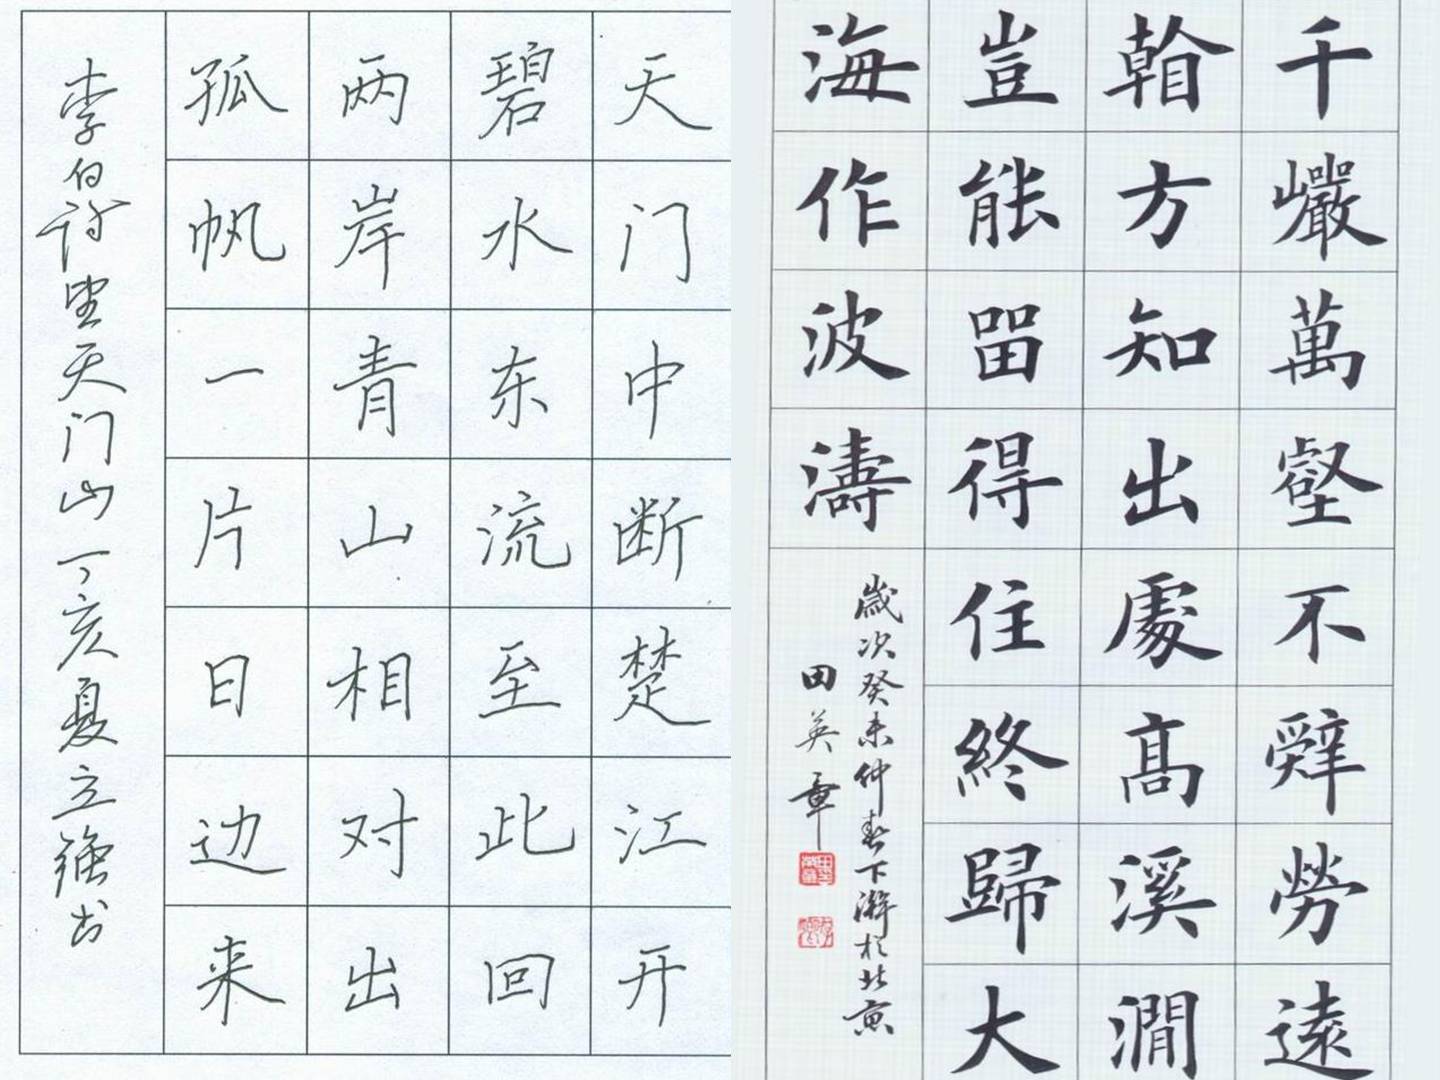 天门中断楚江开
碧水东流至此回
两岸青山相对出
孤帆一片日边来
李白诗望天门山丁亥夏立强书
千巗萬壑不辭勞遠
看方知出處髙溪澗
豈能留得住終歸大
海作波濤
歲次癸未仲春下澣於北京
田英章